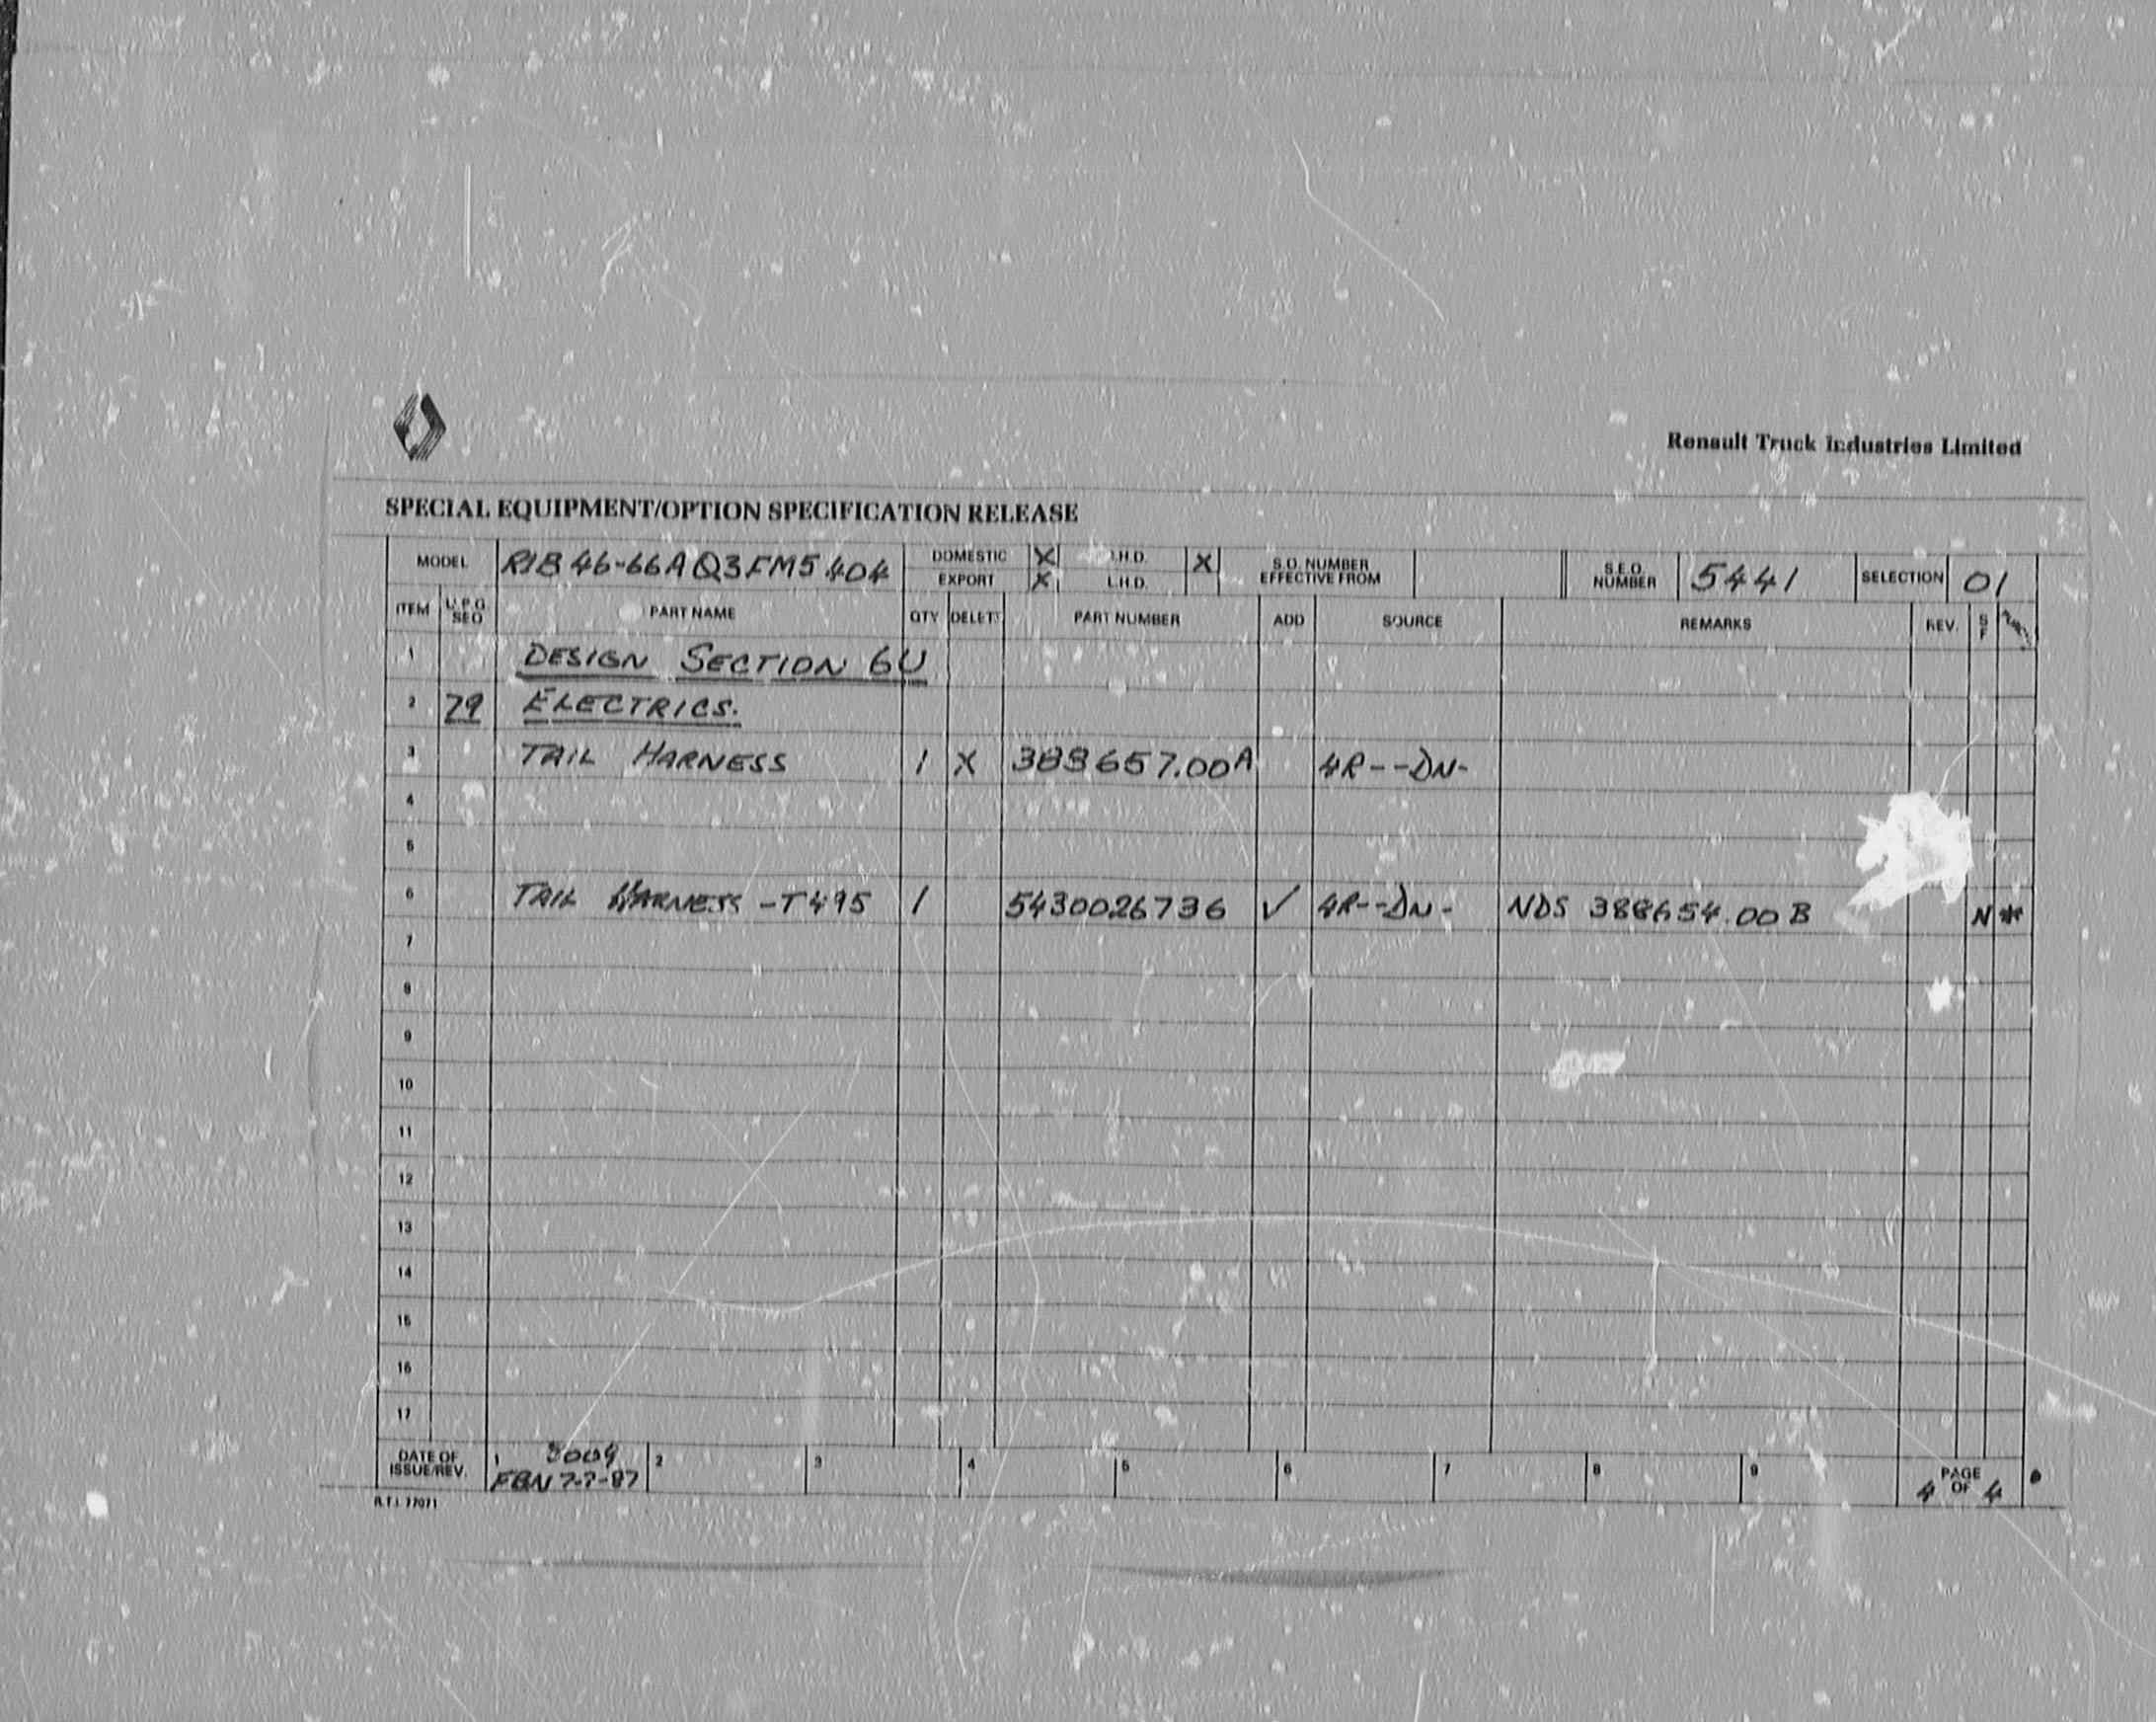 Renault Truck Industries Limited
SPECIAL EQUIPMENT/OPTION SPECIFICATION RELEASE
MODEL R1B46-66AQ3FM5404 DOMESTIC X .H.D. X S.O. NUMBER EFFECTIVE FROM S.E.O. NUMBER 5441 SELECTION 01
EXPORT X L.H.D.
ITEM U.P.G. SEQ PART NAME QTY DELETE PART NUMBER ADD SOURCE REMARKS REV. S F
1 DESIGN SECTION 6U
2 79 ELECTRICS.
3 TAIL HARNESS 1 X 388657.00A 4R--DN-
4
5
6 TAIL HARNESS -T495 1 5430026736 ✓ 4R--DN- NDS 388654.00B N *
7
8
9
10
11
12
13
14
15
16
17
DATE OF ISSUE/REV. 1 2 3 4 5 6 7 8 9 PAGE 4 OF 4
FBN 7-7-87
R.T.I. 77071